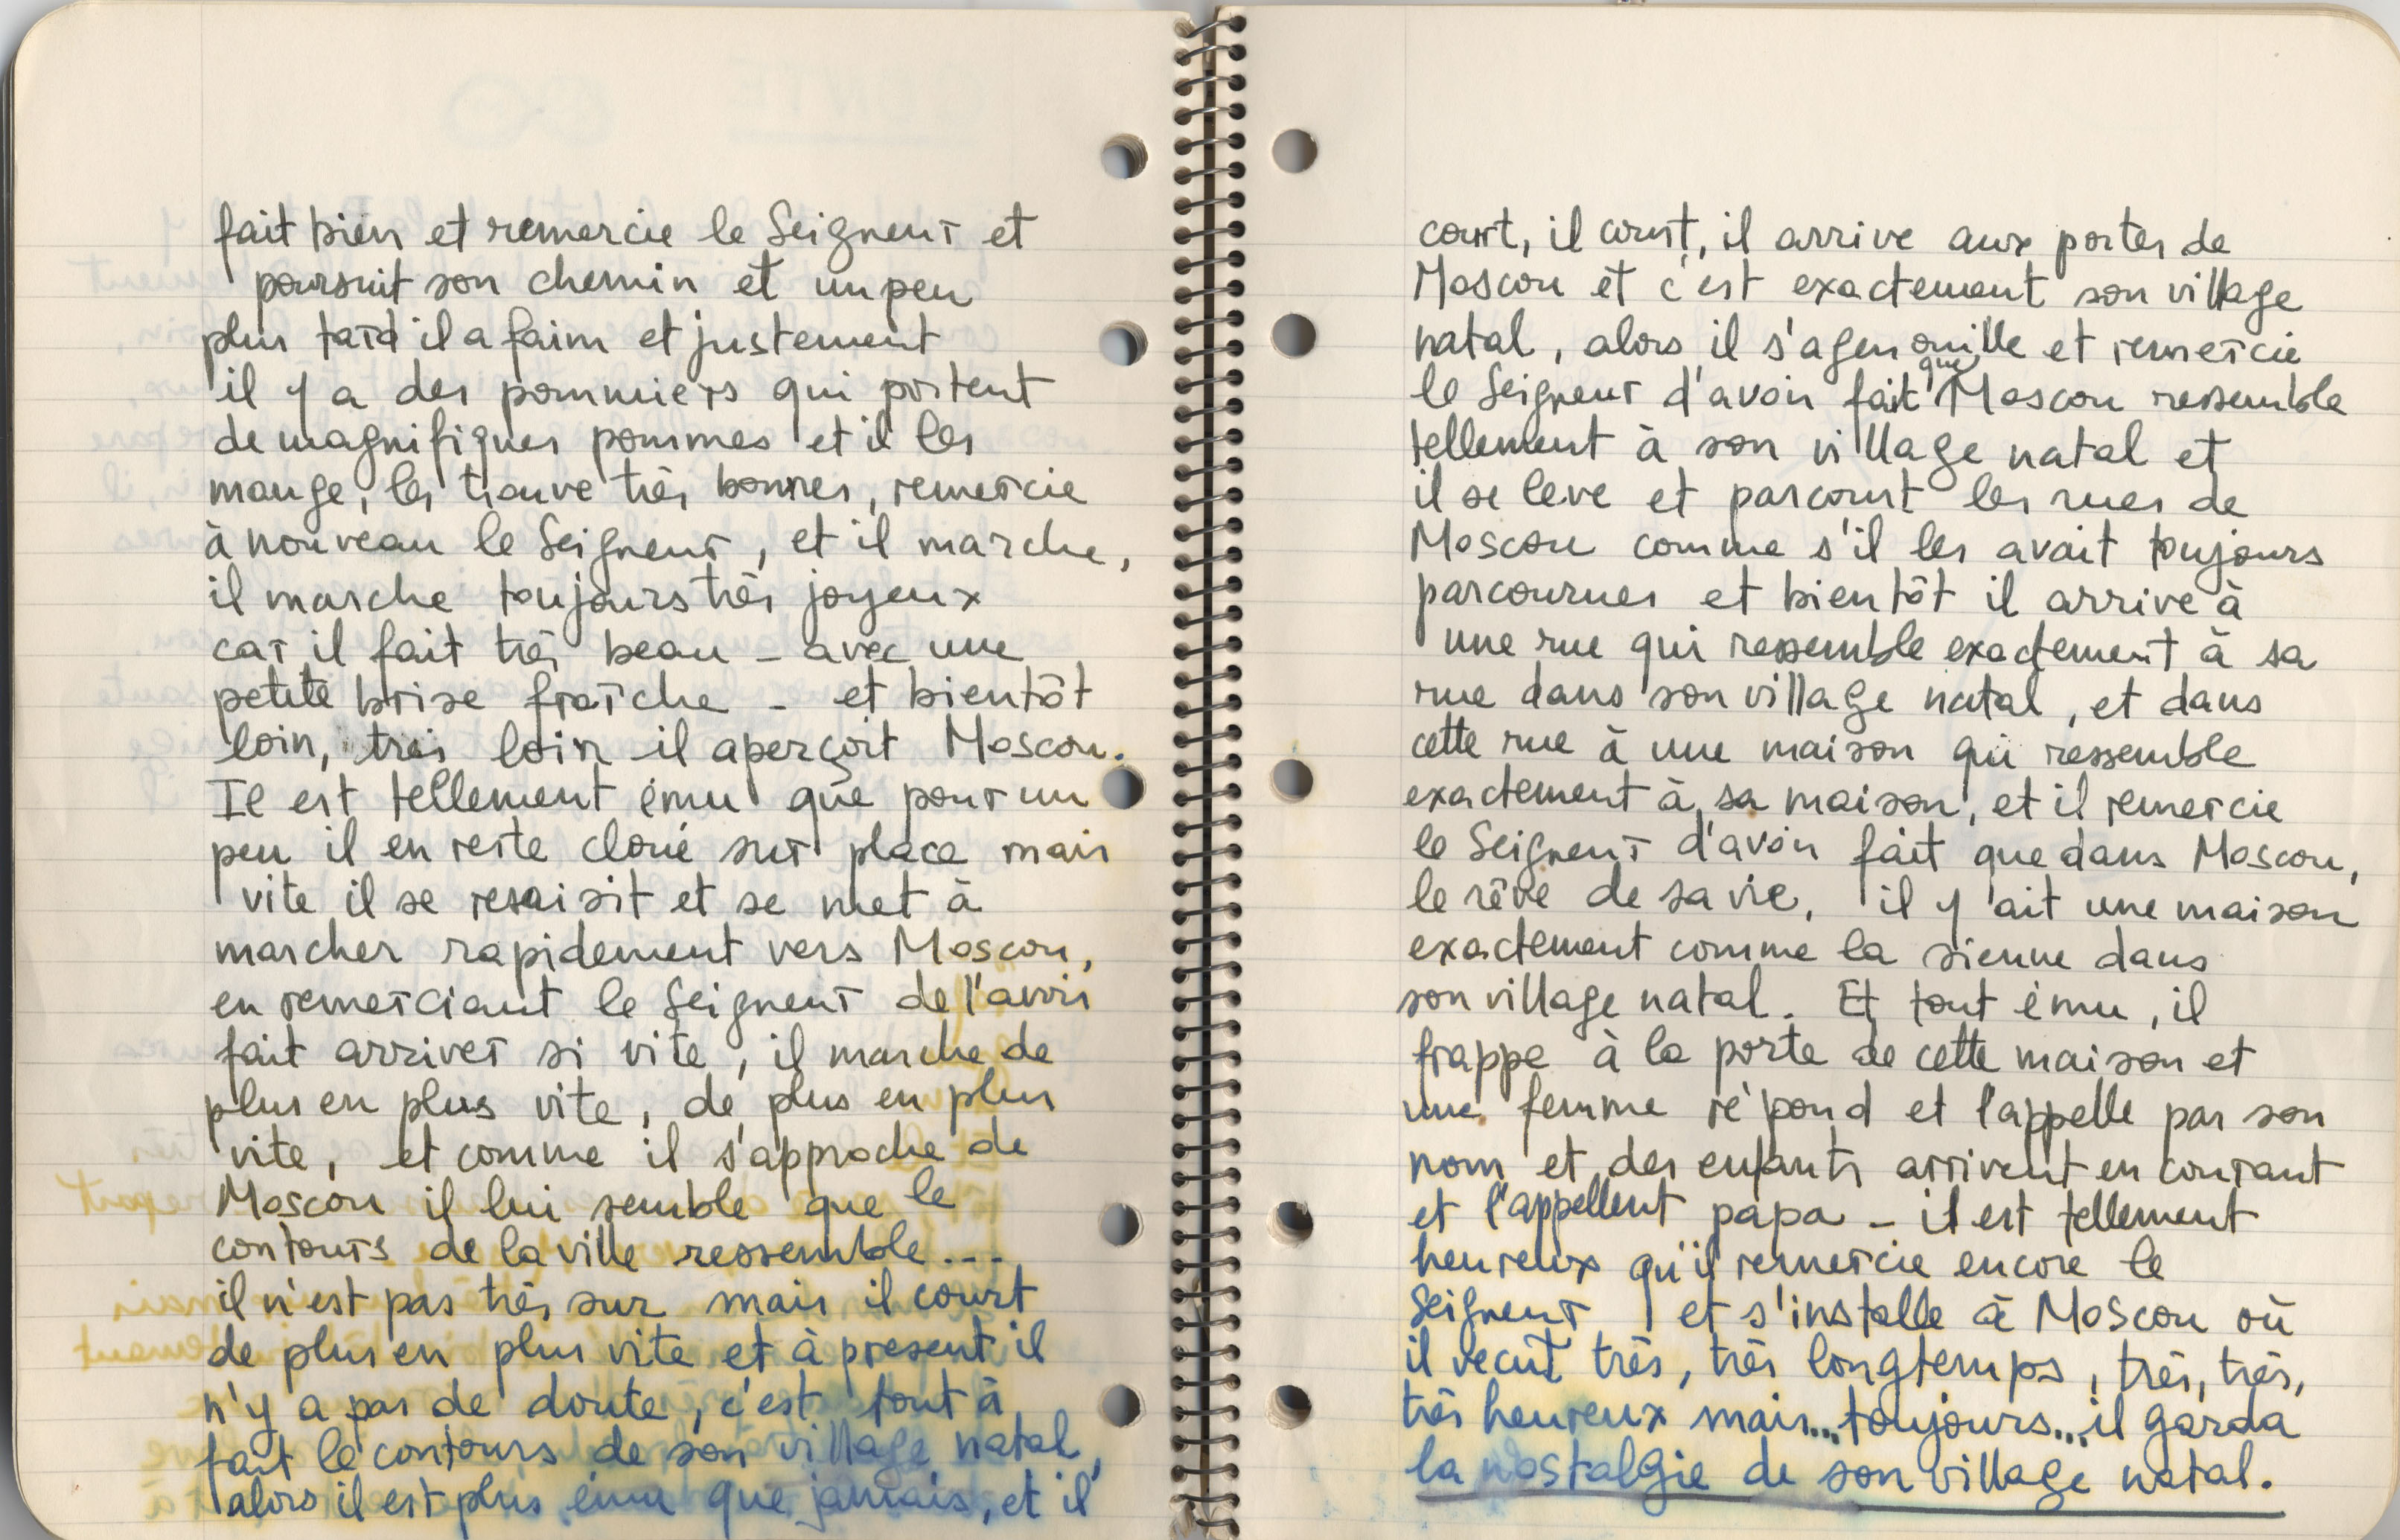 fait bien et remercie le Seigneur et
poursuit son chemin et un peu
plus tard il a faim et justement
il y a des pommiers qui portent
de magnifiques pommes et il les
mange, les trouve très bonnes, remercie
à nouveau le Seigneur, et il marche,
il marche toujours très joyeux
car il fait très beau - avec une
petite brise fraîche - et bientôt
loin, très loin il aperçoit Moscou.
Il est tellement ému que pour un
peu il en reste cloué sur place mais
vite il se resaisit et se met à
marcher rapidement vers Moscou,
en remerciant le Seigneur de l'avoir
fait arriver si vite, il marche de
plus en plus vite, de plus en plus
vite, et comme il s'approche de
Moscou il lui semble que le
contours de la ville ressemble...
il n'est pas très sur mais il court
de plus en plus vite et à present il
n'y a pas de doute, c'est tout à
fait le contours de son village natal,
alors il est plus ému que jamais, et il
court, il court, il arrive aux portes de
Moscou et c'est exactement son village
natal, alors il s'agenouille et remercie
le Seigneur d'avoir fait que Moscou ressemble
tellement à son village natal et
il se leve et parcourt les rues de
Moscou comme s'il les avait toujours
parcourues et bientôt il arrive à
une rue qui ressemble exactement à sa
rue dans son village natal, et dans
cette rue à une maison qui ressemble
exactement à sa maison, et il remercie
le Seigneur d'avoir fait que dans Moscou,
le rêve de sa vie, il y ait une maison
exactement comme la sienne dans
son village natal. Et tout ému, il
frappe à la porte de cette maison et
une femme répond et l'appelle par son
nom et des enfants arrivent en courant
et l'appellent papa - il est tellement
heureux qu'il remercie encore le
Seigneur et s'installe à Moscou où
il vecut très, très longtemps, très, très,
très heureux mais... toujours... il garda
la nostalgie de son village natal.